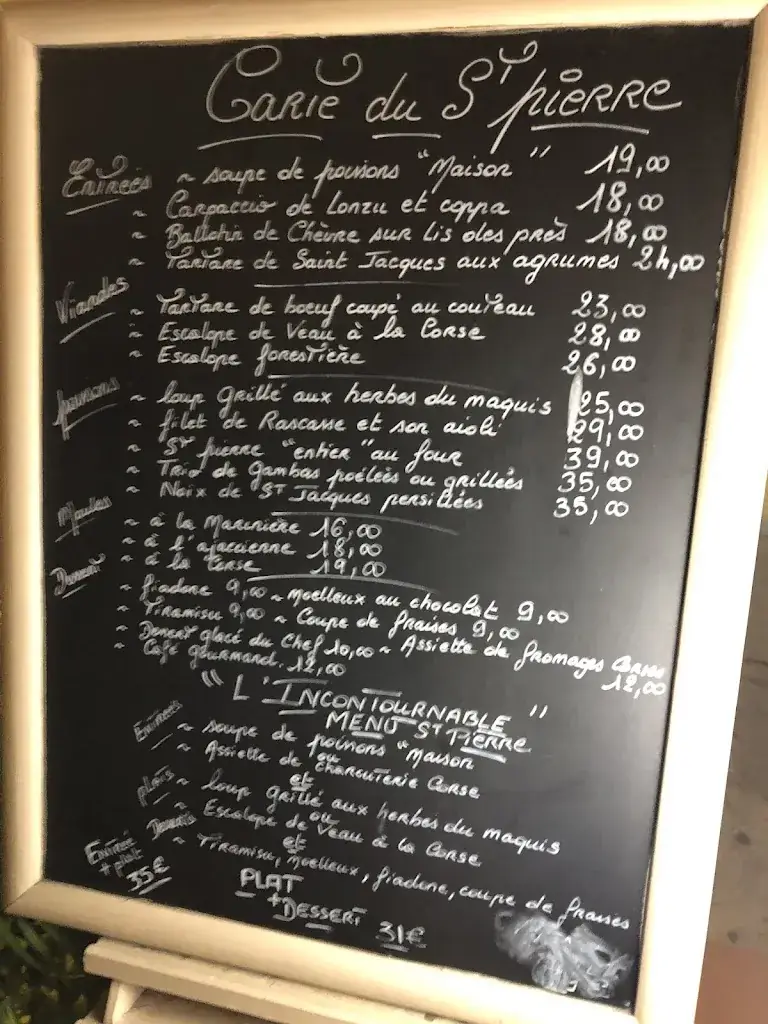 Carte du St pierre
Entrées ~ soupe de poissons "Maison" 19,00
~ Carpaccio de Lonzu et coppa 18,00
~ Ballotin de Chèvre sur Lis des près 18,00
~ Tartare de Saint Jacques aux agrumes 24,00
Viandes
~ Tartare de boeuf coupé au couteau 23,00
~ Escalope de Veau à la Corse 28,00
~ Escalope forestière 26,00
poissons
~ loup grillé aux herbes du maquis 25,00
~ filet de Rascasse et son aioli 29,00
~ St pierre "entier" au four 39,00
~ Trio de gambas poélées ou grillées 35,00
~ Noix de St Jacques persillées 35,00
Moules
~ à la Marinière 16,00
~ à l'ajaccienne 18,00
~ à la Corse 19,00
Dessert
~ fiadone 9,00 ~ Moelleux au chocolat 9,00
~ Tiramisu 9,00 ~ Coupe de fraises 9,00
~ Dessert glacé du Chef 10,00 ~ Assiette de fromages Corses 12,00
~ Café gourmand. 12,00
"L'INCONTOURNABLE"
MENU ST PIERRE
Entrées
~ soupe de poissons "Maison
ou
~ Assiette de charcuterie Corse
et
plats
~ loup grillé aux herbes du maquis
ou
~ Escalope de Veau à la Corse
et
Desserts
~ Tiramisu, moelleux, fiadone, coupe de fraises
Entrée
+ plat
35€
PLAT
+ DESSERT 31€